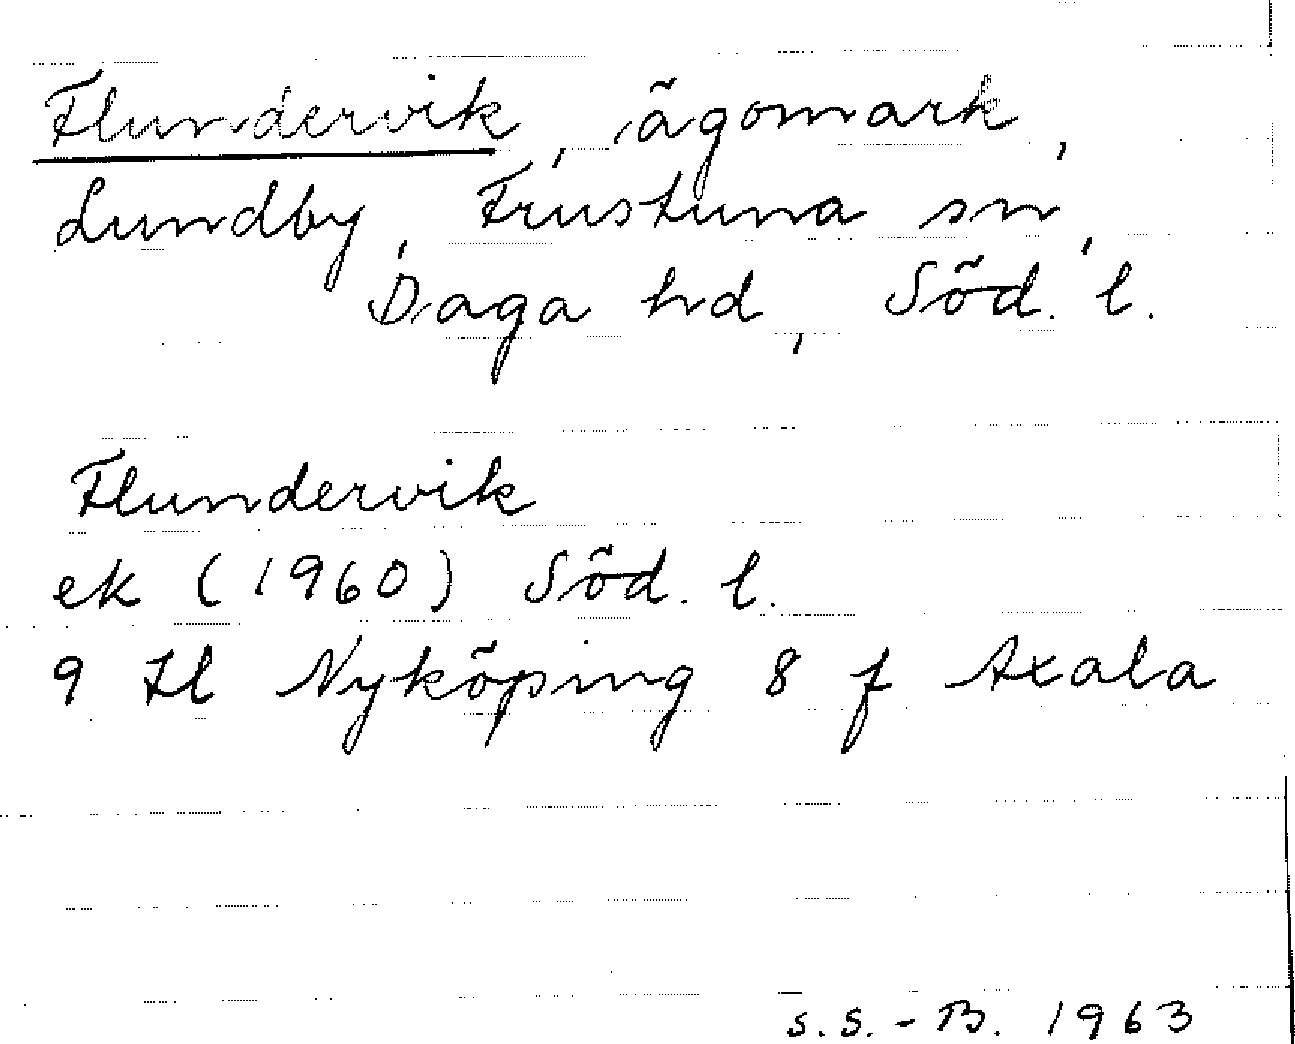 Flundervik, ägomark,
Lundby, Frustuna sn,
Daga hd, Söd. l.
Flundervik
ek (1960) Söd. l.
9 H Nyköping 8 f Axala
S.S.-B. 1963